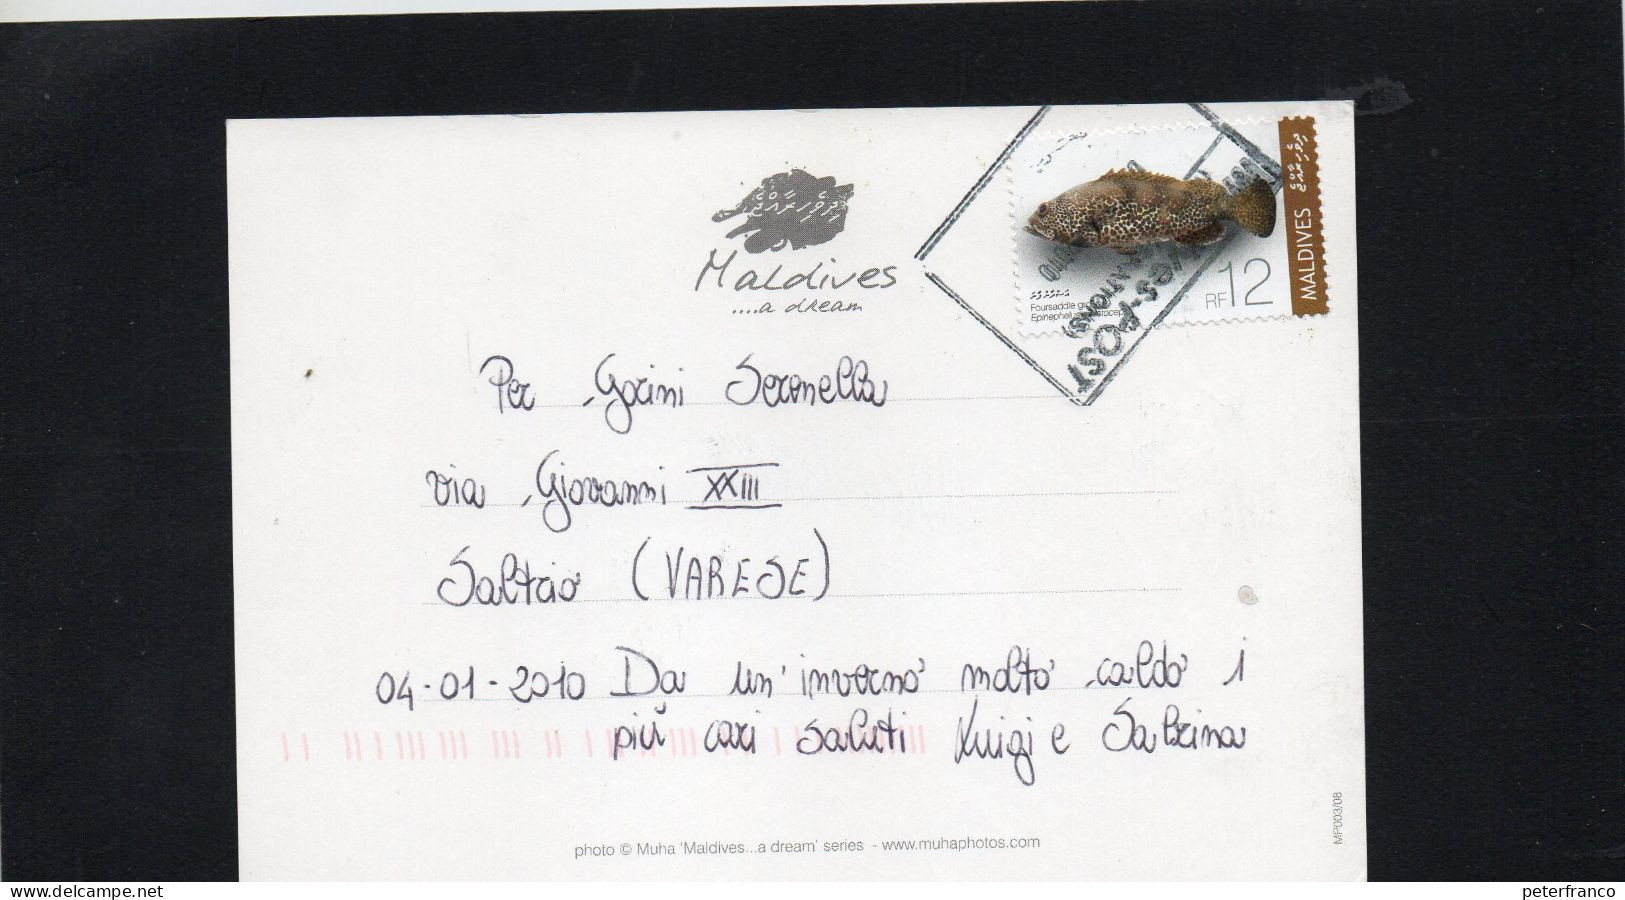 ދިވެހިރާއްޖެ
Maldives
....a dream
ދިވެހިރާއްޖެ
MALDIVES
RF12
Foursaddle
Epinephelus
POST
Per Gorini Serenella
via Giovanni XXIII
Saltrio (VARESE)
04-01-2010 Da un'inverno molto caldo i
più cari saluti Luigi e Sabrina
photo © Muha 'Maldives...a dream' series - www.muhaphotos.com
MP003/08
www.delcampe.net
peterfranco